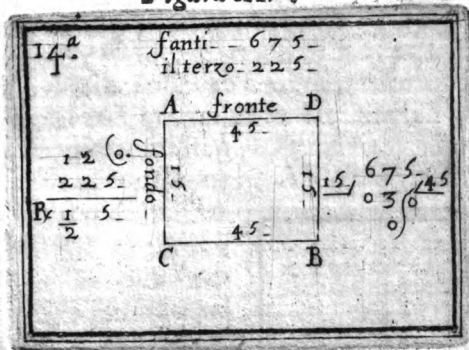 14.ª
fanti - - 6 7 5 -
il terzo - 2 2 5 -
A fronte D
4 5 -
fondo -
1 5 -
1 5 -
4 5 -
C B
1 2 (0.
2 2 5 -
℞ 1 5 -
2
15 / 6 7 5 - / 45
0 3 0
0